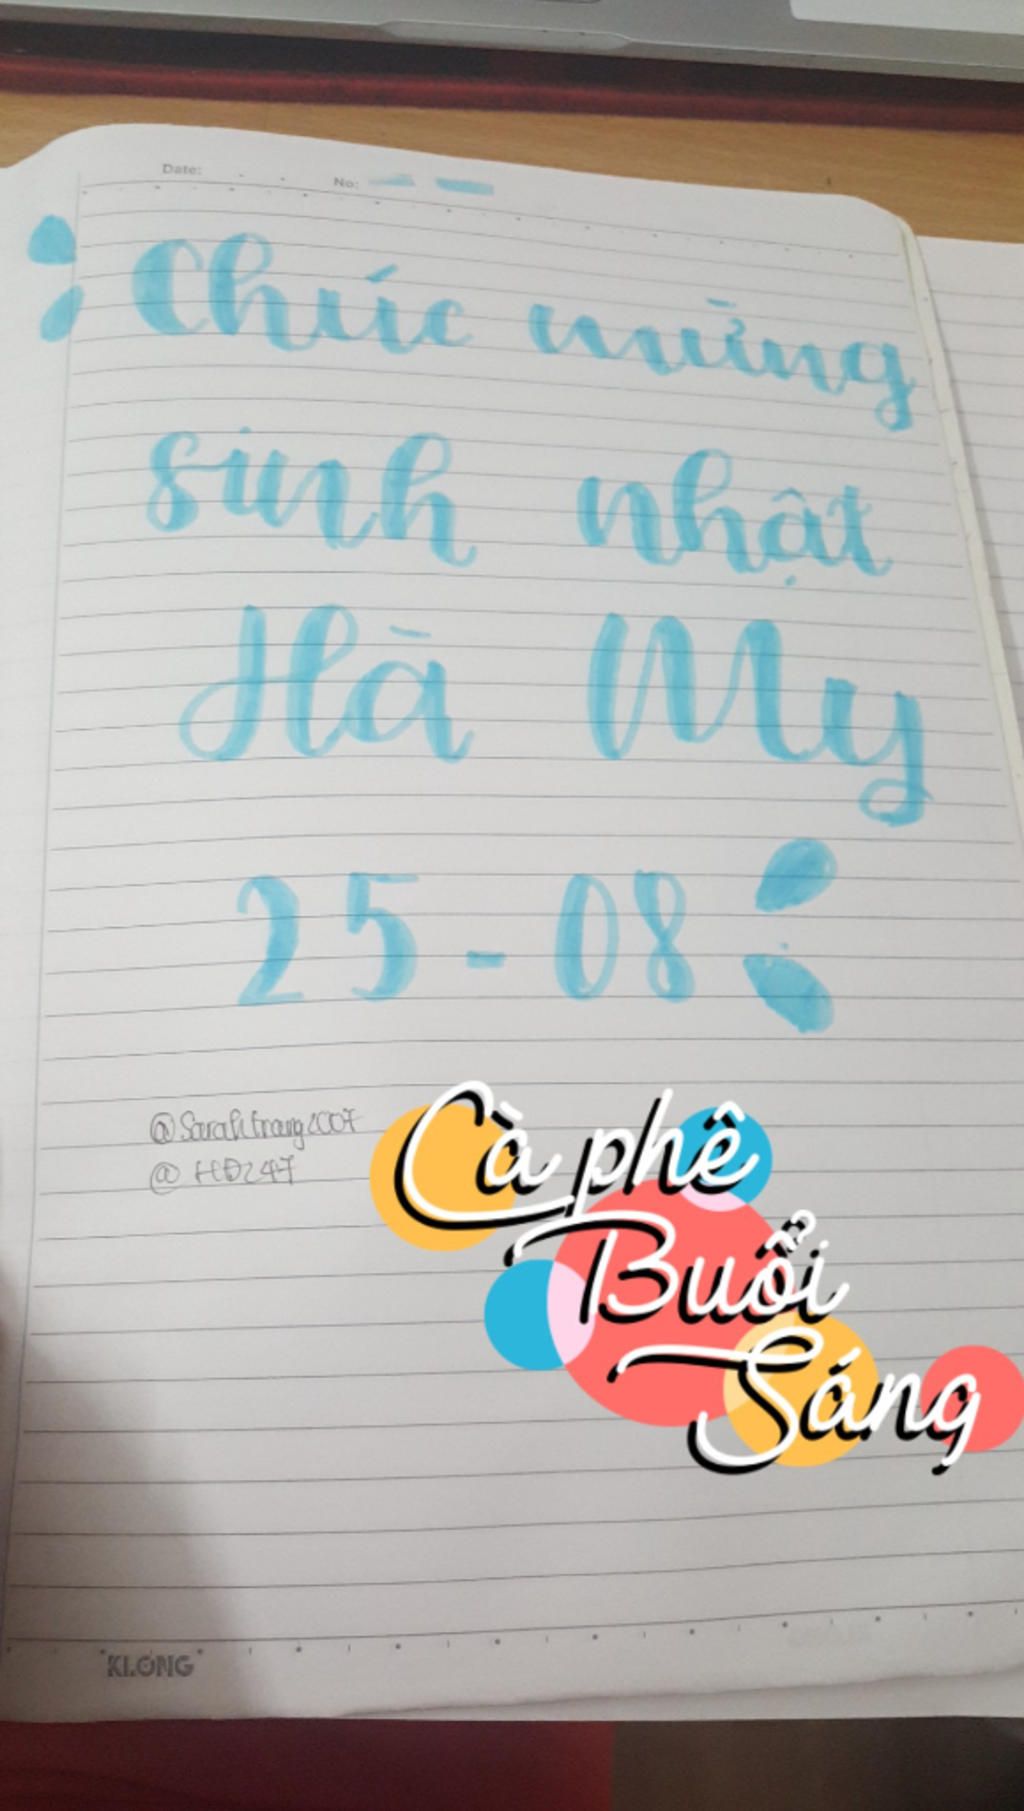 Date:
No:
Chúc mừng
sinh nhật
Hà My
25-08
@Sarahtrang2007
@HD247
Cà phê
Buổi
Sáng
KLONG